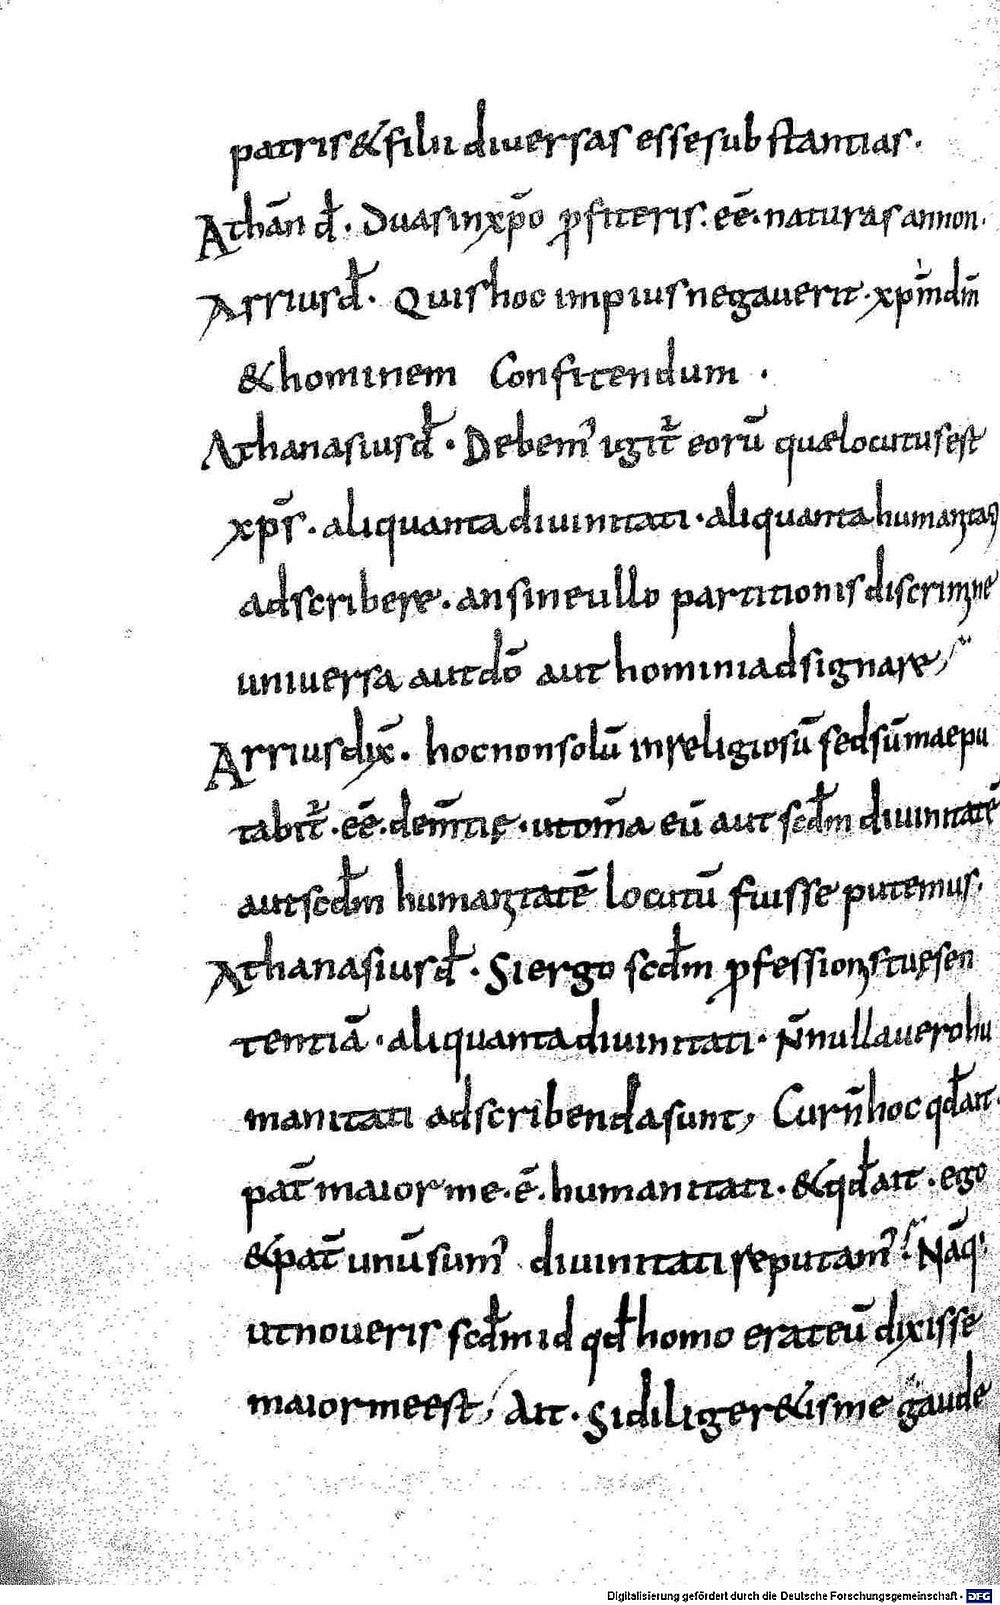 patris & filii diuersas esse substantias.
Athān d̄. Duas in xp̄o p̄fiteris. eē. naturas annon.
Arrius d̄. Quis hoc impius negauerit. xp̄m dm̄
& hominem Confitendum.
Athanasius d̄. Debem᾽ igit̄ eorū quae locutus est
xp̄s. aliquanta diuinitati. aliquanta humanitati
adscribere. an sine ullo partitionis discrimine
uniuersa aut dō aut homini adsignare,
Arrius dix̄. hoc non solū inreligiosū sed sūmae pu
tabit̄. eē. dem̄tię. ut om̄a eū aut scdm̄ diuinitatē
aut scdm̄ humanitatē locutū fuisse putemus.
Athanasius d̄. Si ergo scdm̄ p̄fessionis tuę sen
tentiā. aliquanta diuinitati. N̄nulla uero hu
manitati adscribenda sunt, Cur n̄ hoc qd̄ ait.
pat̄ maior me. ē. humanitati. & qd̄ ait. ego
& pat̄ unū sum᾽ diuinitati reputam᾽. Nāq;
ut noueris scdm̄ id qd̄ homo erat eū dixisse
maior me est, Ait. Si diliger&is me gaude
Digitalisierung gefördert durch die Deutsche Forschungsgemeinschaft - DFG